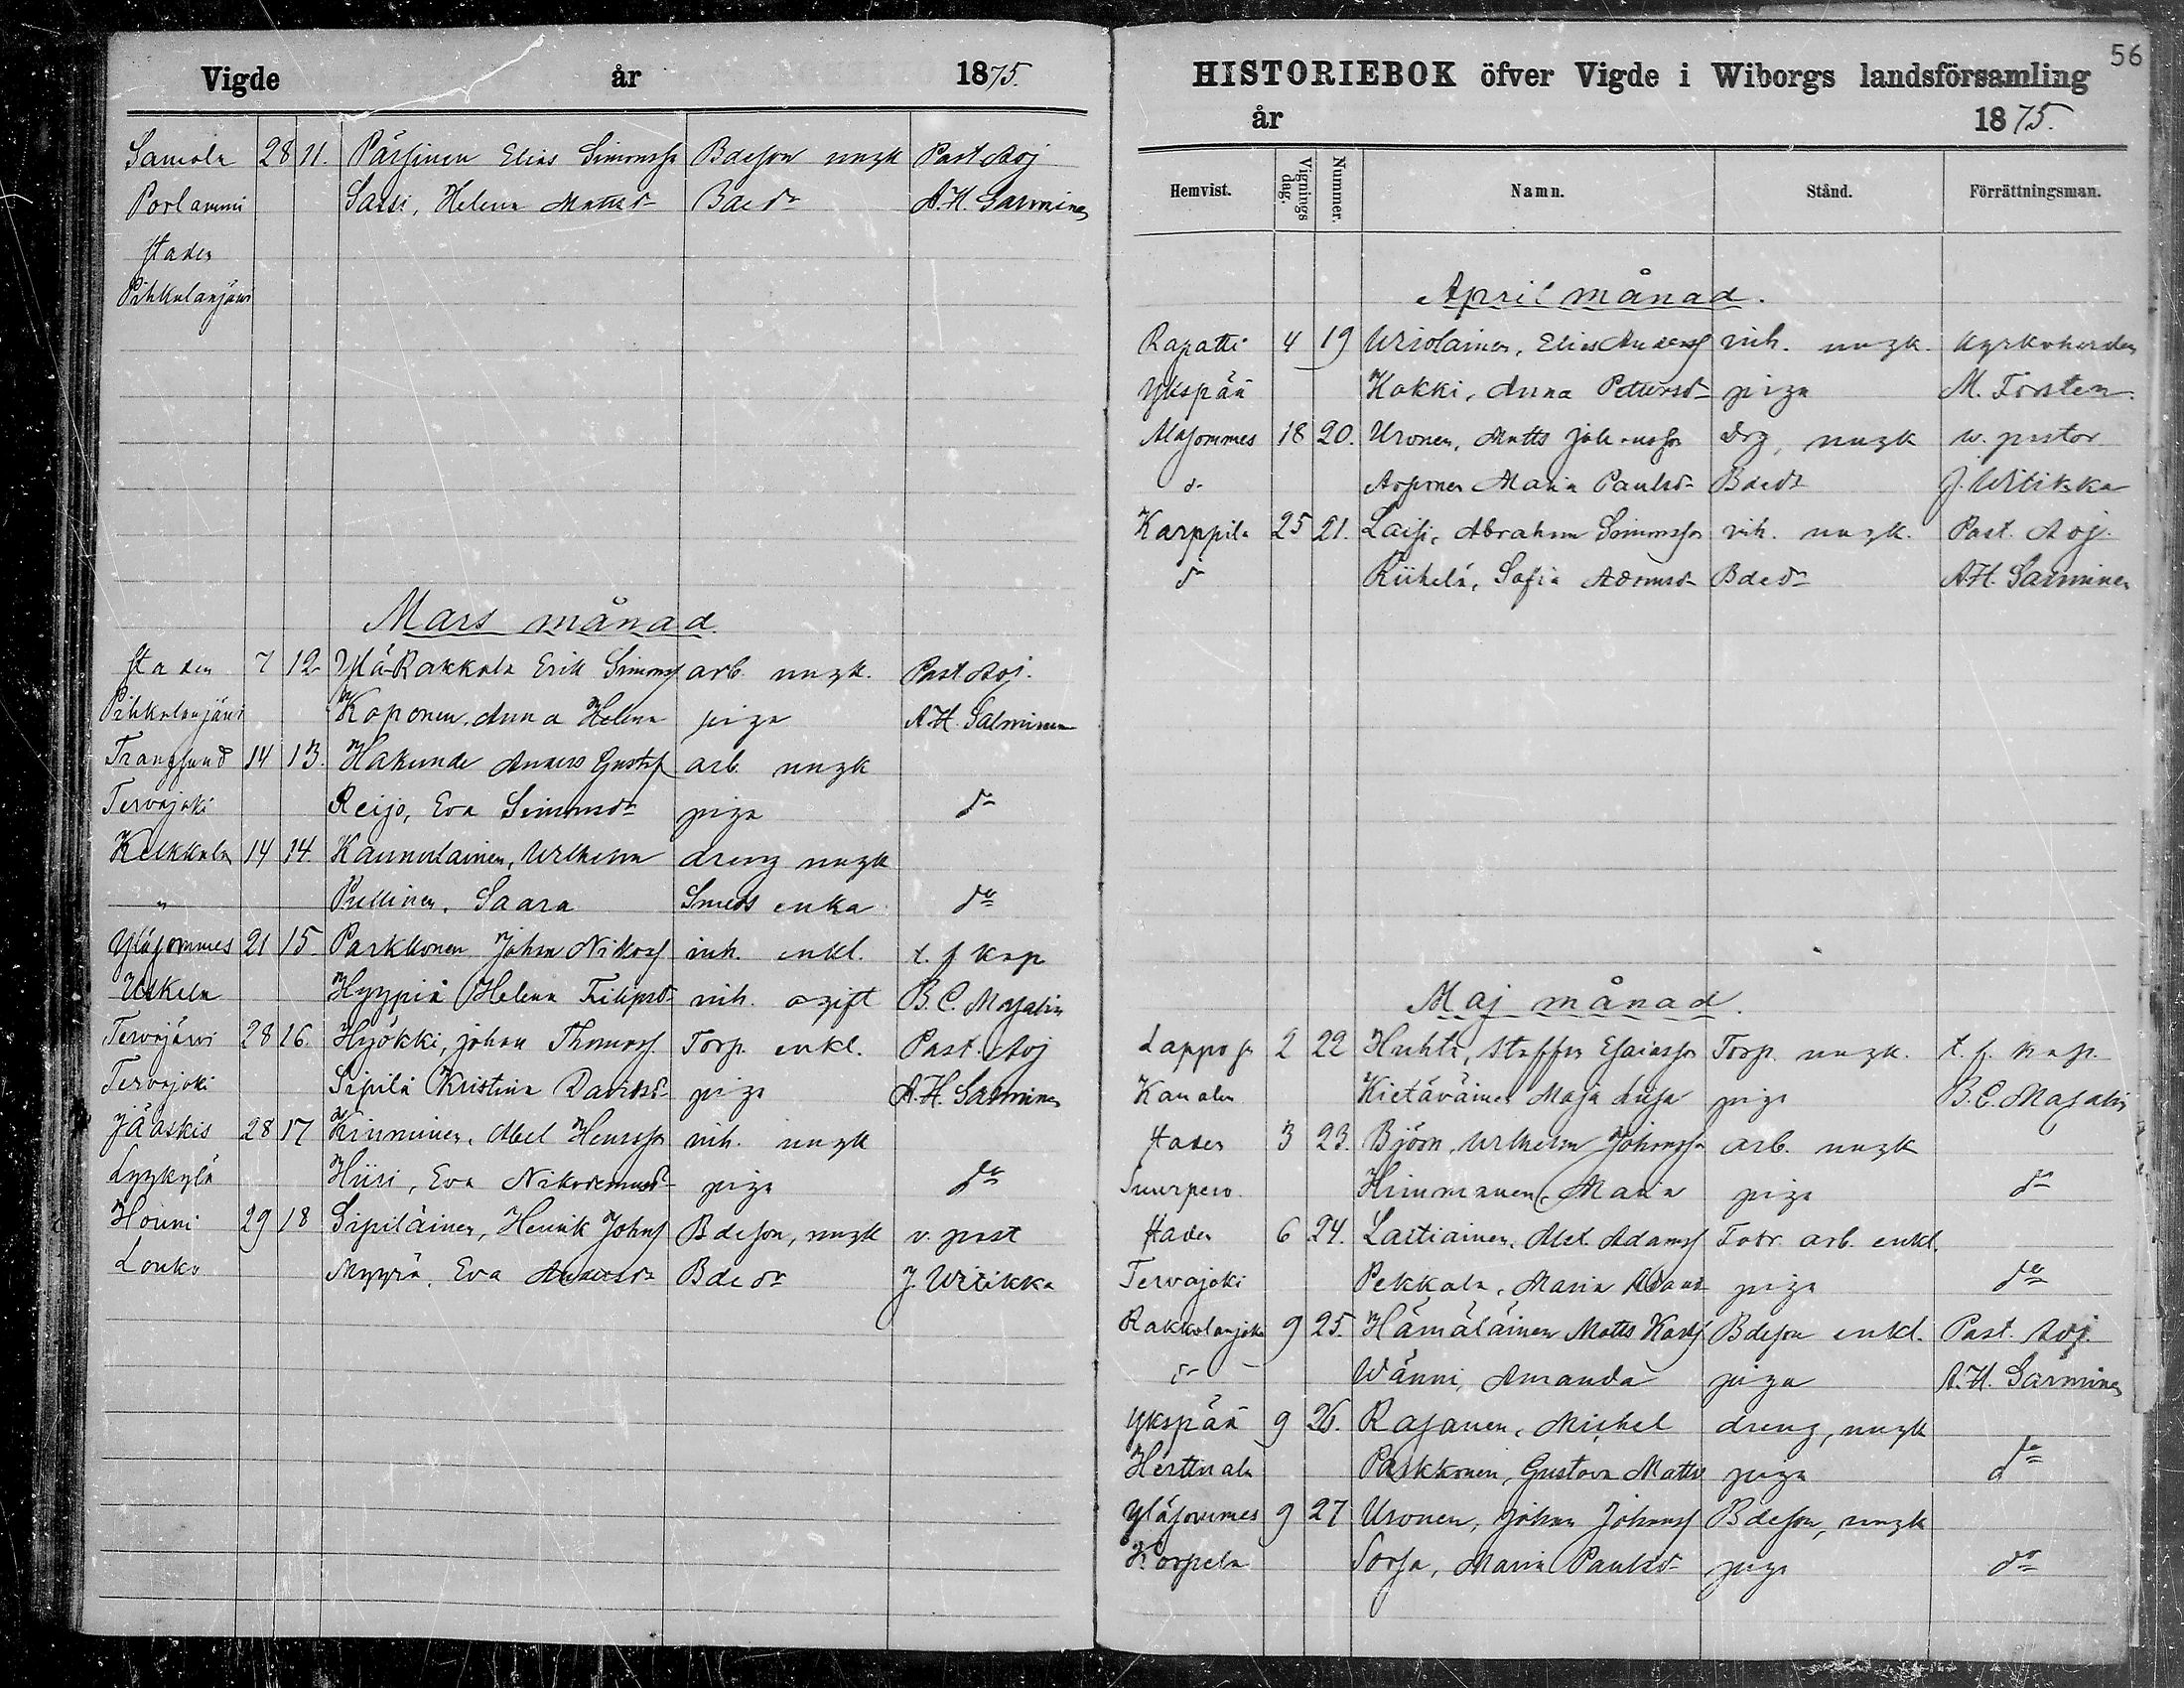 Vigde år 1875.
Samola 28 11. Pärssinen Elias Simonss Bdeson nugk Past Adj
Porlammi Sassi, Helena Mattsd Bdedr A.H. Salminen
staden
Pihkalanjärvi
Mars månad.
staden 7 12 Ylä-Rakkola Erik Simonss arb. nugk. Past Adj.
Pihkalanjärvi Koponen, Anna Helena piga A.H. Salminen
Trangsund 14 13. Hakunde Anders Gustaf arb. nugk
Tervajoki Reijo, Eva Simonsdr piga do
Kelkkala 14 14. Kaunulainen, Wilhelm dreng nugk
" Pullinen, Saara Smeds enka do
Yläsommes 21 15. Parkkonen Johan Nikoss inh. enkl. t. f. kap.
Uskela Hyyppiä Helena Filipsd inh. ogift B.C. Majalin
Tervajärvi 28 16. Hyökki, Johan Thomass. Torp. enkl. Past. Adj
Tervajoki Sipilä Kristina Davidsd piga A.H. Salminen
Jääskis 28 17 Kinnunen, Abel Henrssn inh. nugk
Lyykylä Hiisi, Eva Nikodemusd piga do
Houni 29 18 Sipiläinen, Henrik Johnss Bdeson, nugk v. past
Louko Myyrä, Eva Andersdr Bdedr J. Witikka
56
HISTORIEBOK öfver Vigde i Wiborgs landsförsamling
år 1875.
Hemvist. Vignings dag. Nummer. Namn. Stånd. Förrättningsman.
April månad.
Rapatti 4 19 Wiolainen, Elias Anderss inh. nugk. Kyrkoherden
Ykspää Kokki, Anna Petersd piga M. Forsten.
Alasommes 18 20. Uronen, Matts Johansson drg, nugk w. pastor
do Asponen Maria Paulsd Bdedr J. Witikka
Karppila 25 21. Laisi, Abraham Simonsson inh. nugk. Past. Adj.
do Riihelä, Sofia Adamsd Bdedr A.H. Salminen
Maj månad.
Lappo s. 2 22 Huhta, Staffan Esaiasson Torp. nugk. t. f. kap.
Kanalen Kietäväinen Maja Lisa piga B.C. Majalin
staden 3 23. Björn, Wilhelm Johansson arb. nugk
Suurpero Himmanen, Maria piga do
staden 6 24. Lastiainen, Abel Adamss Fabr. arb. enkl.
Tervajoki Pekkala, Maria Adamd piga do
Rakkolanjoki 9 25. Hämäläinen Matts Karlss Bdeson enkl. Past. Adj.
do Wänni, Amanda piga A.H. Salminen
Ykspää 9 26. Rajanen, Michel dreng, nugk
Herttuala Parkkonen, Gustava Mattsd piga do
Yläsommes 9 27 Uronen, Johan Johanss Bdeson, nugk
Korpela Sorsa, Maria Paulsd piga do